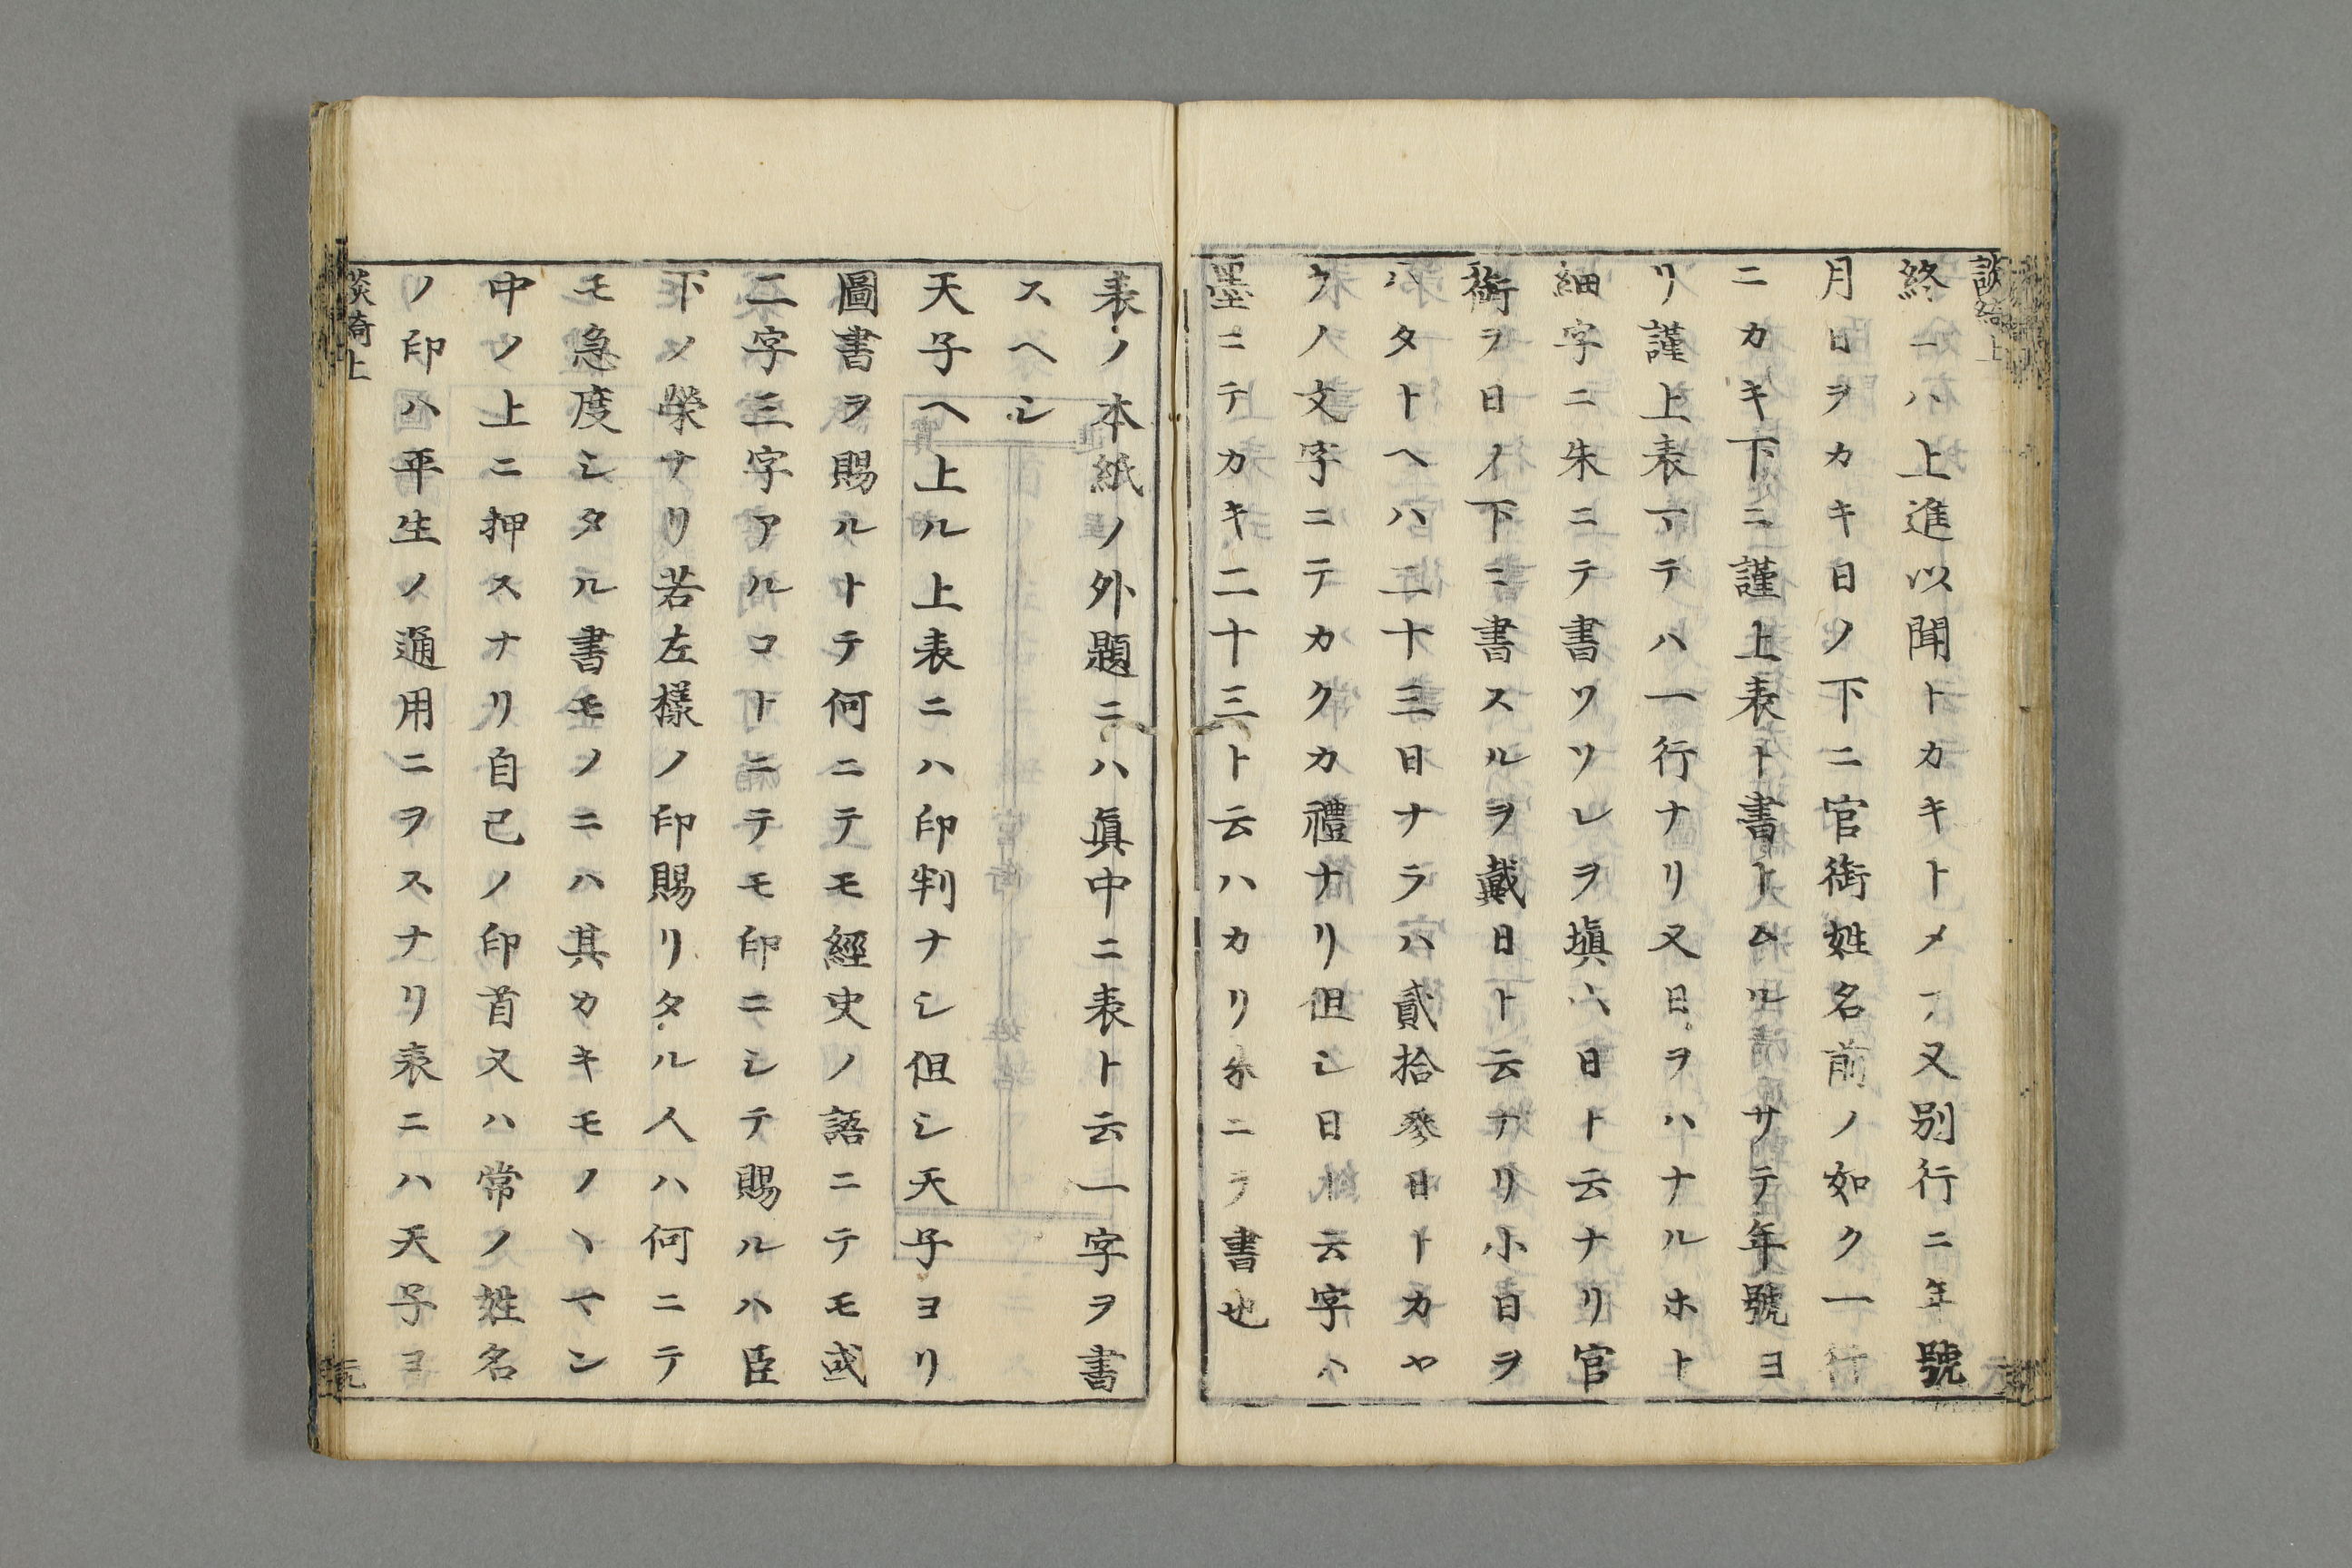 終ニハ上進以聞トカキトメテ又別行ニ年號
月日ヲカキ日ノ下ニ官銜姓名前ノ如ク一行
ニカキ下ニ謹上表ト書トムルサテ年號ヨ
リ謹上表マテハ一行ナリ又日ヲハナルホト
細字ニ朱ニテ書ソソレヲ塡日ト云ナリ官
銜ヲ日ノ下ニ書スルヲ戴日ト云ナリ小日ヲ
ハタトヘハ二十三日ナラハ貳拾參日トカヤ
ウノ文字ニテカクカ禮ナリ但シ日ト云字ハ
墨ニテカキ二十三ト云ハカリ朱ニテ書也
表ノ本紙ノ外題ニハ眞中ニ表ト云一字ヲ書
スヘシ
天子ヘ上ル上表ニハ印判ナシ但シ天子ヨリ
圖書ヲ賜ルトテ何ニテモ經史ノ語ニテモ或
二字三字アルコトニテモ印ニシテ賜ルハ臣
下ノ榮ナリ若左樣ノ印賜リタル人ハ何ニテ
モ急度シタル書モノニハ其カキモノヽマン
中ノ上ニ押スナリ自己ノ印首又ハ常ノ姓名
ノ印ハ平生ノ通用ニヲスナリ表ニハ天子ヨ
談綺上